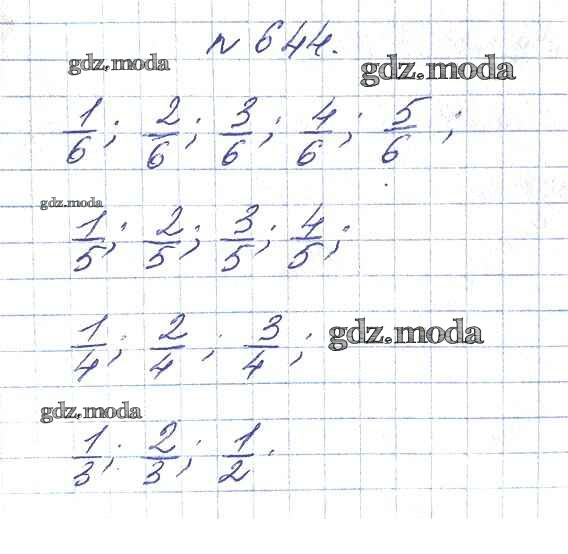 № 644.
gdz.moda gdz.moda
1/6; 2/6; 3/6; 4/6; 5/6;
gdz.moda
1/5; 2/5; 3/5; 4/5;
1/4; 2/4; 3/4; gdz.moda
gdz.moda
1/3; 2/3; 1/2.